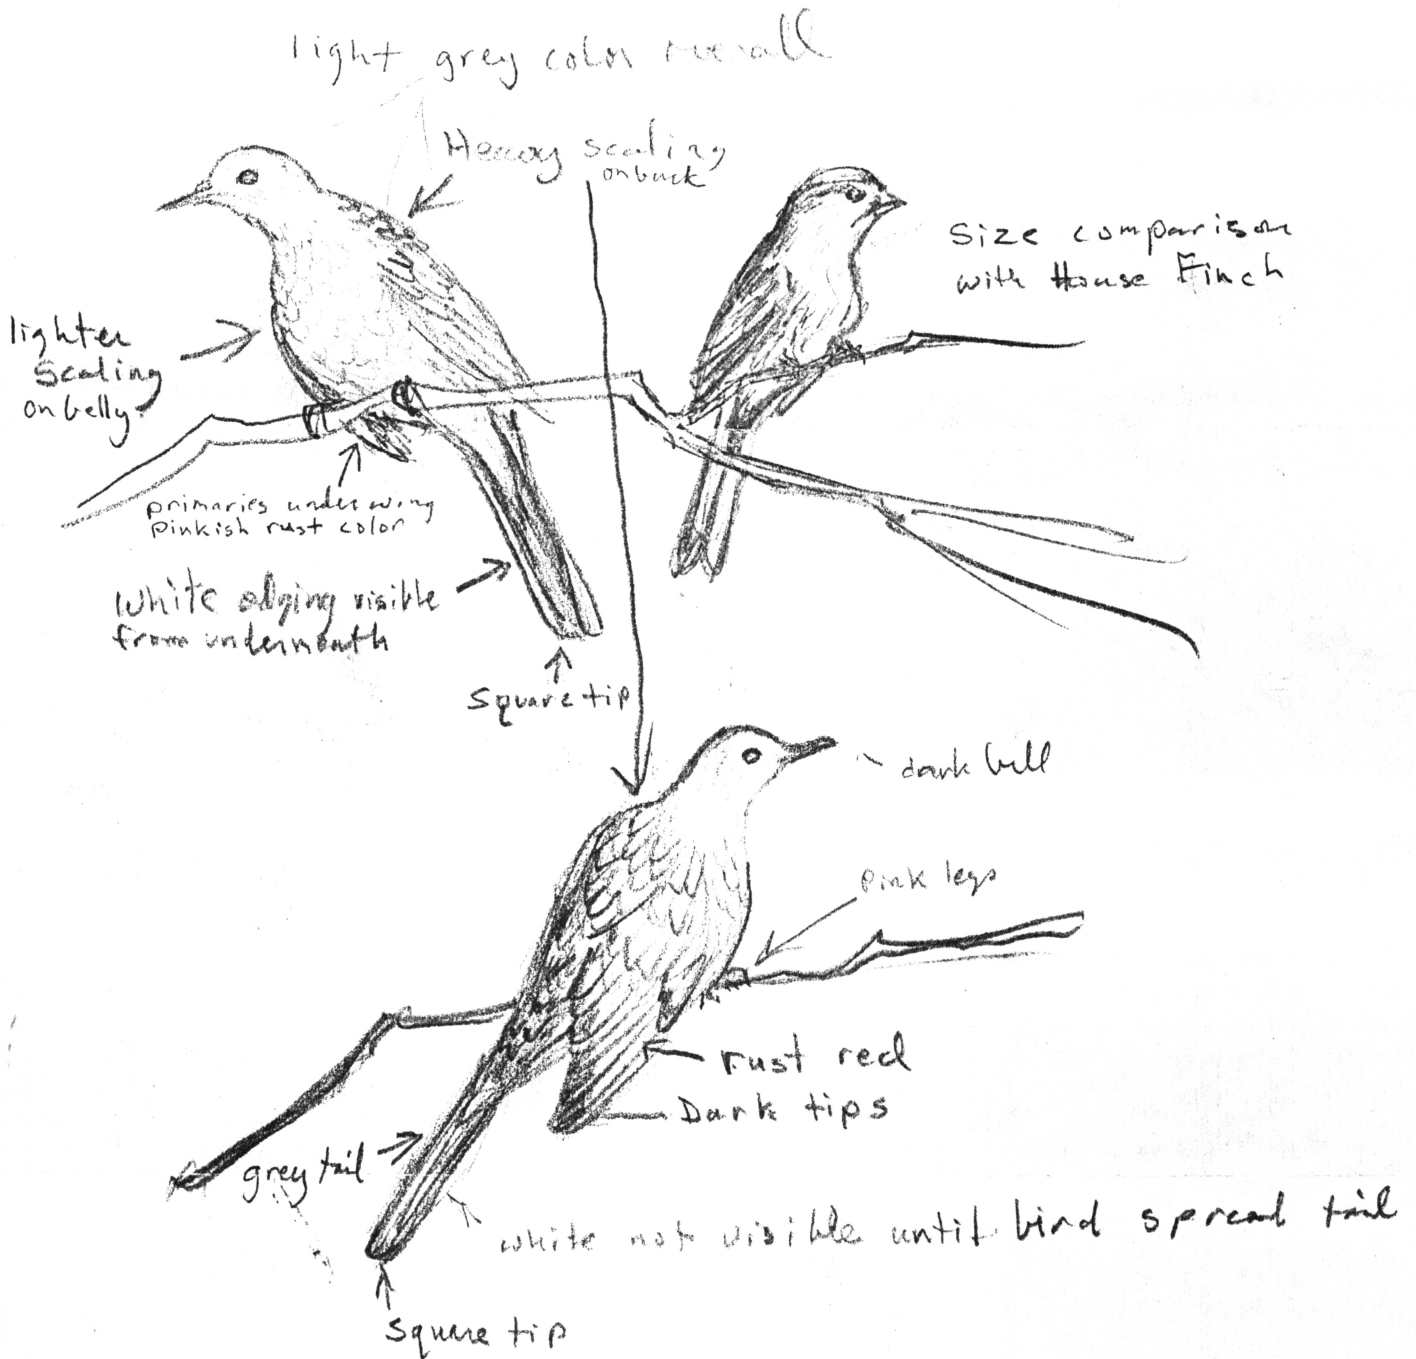 light grey color overall
Heavy scaling
on back
Size comparison
with House Finch
lighter
scaling
on belly
primaries under wing
pinkish rust color
White edging visible
from underneath
Square tip
dark bill
pink legs
rust red
Dark tips
grey tail
white not visible until bird spread tail
Square tip